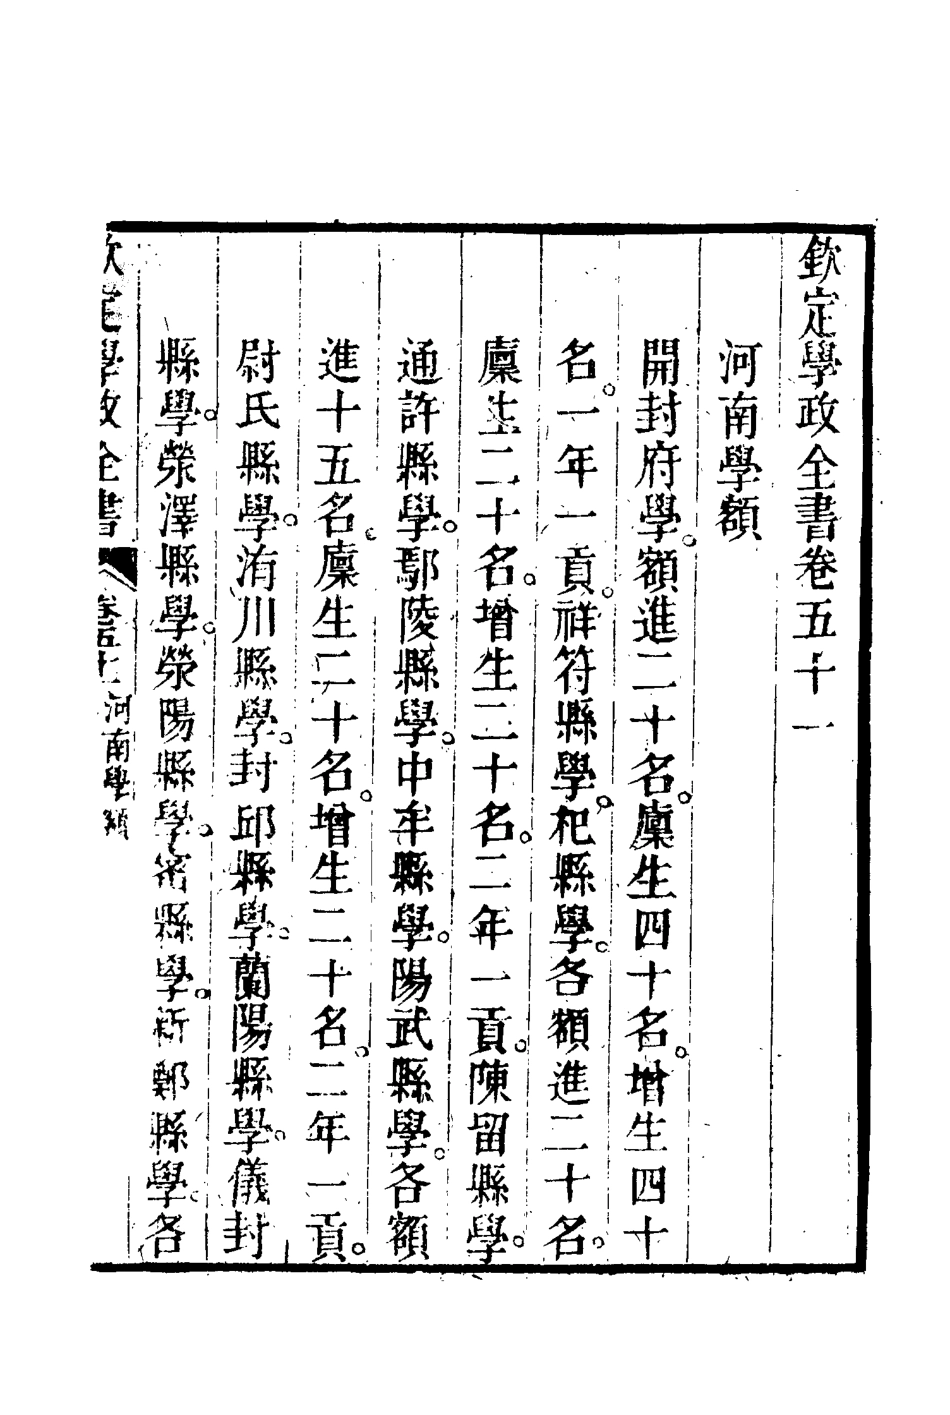 欽定學政全書卷五十一
河南學額
開封府學。額進二十名。廩生四十名。增生四十
名。一年一貢。祥符縣學。杞縣學。各額進二十名。
廩生二十名。增生二十名。二年一貢。陳留縣學。
通許縣學。鄢陵縣學。中牟縣學。陽武縣學。各額
進十五名。廩生二十名。增生二十名。二年一貢。
尉氏縣學。洧川縣學。封邱縣學。蘭陽縣學。儀封
縣學。滎澤縣學。滎陽縣學。密縣學。新鄭縣學。各
欽定學政全書 卷五十一 河南學額